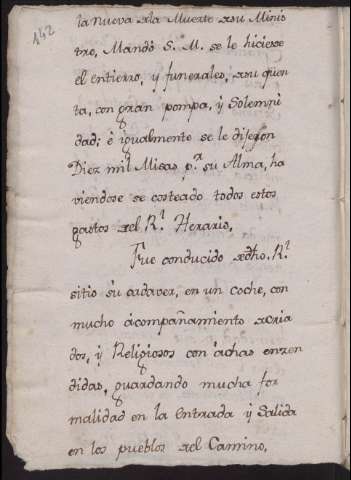 142
la nueva de la Muerte de su Minis
tro, Mandó S. M. se le hiciese
el entierro, y funerales, de su quen
ta, con gran pompa, y Solemni
dad; é igualmente se le dijeron
Diez mil Misas p.r su Alma, ha
viendose se costeado todos estos
gastos del R.l Herario.
Fue conducido de dho. R.l
sitio su cadaver, en un coche, con
mucho ácompañamiento de cria
dos, y Religiosos con áchas encen
didas, guardando mucha for
malidad en la entrada y Salida
en los pueblos del Camino.